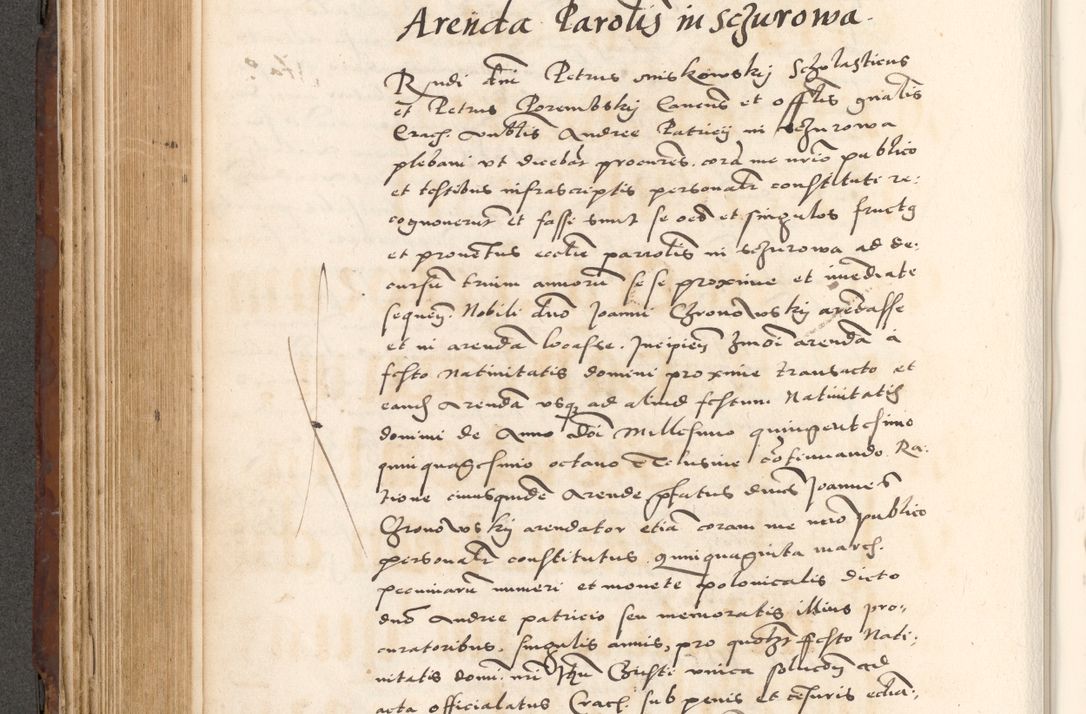 Arenda Parolis in Sczurowa
Rndi dni Petrus miskowskij Scholasticus
et Petrus Porembskij Cancus et offlis gnalis
Crach. Andree Patricij in Sczurowa
plebani ut dicebat procures. cora me nrio publico
et testibus infrascriptis personalr constituti re:
cognoverut et fassi sunt se oes et singulos fructus
et proventus ecclie parrolis in sczurowa ad de:
cursu trium annoru se se proxime et imediate
sequen. Nobili dno Joanni Czronowskij arendasse
et in arenda locasse. Incipien hmoi arenda a
festo Nativitatis domini proxime transacto et
eande Arenda usq ad aliud festum Nativitatis
domini de Anno doi Millesimo quingentesimo
quinquagesimo octavo exclusive cotinuando. Ra:
tione cuiusquide Arende pfatus dnus Joannes
Czronowskij arendator etia coram me nrio publico
personalr constitutus. quinquaginta march.
pecuniaru numeri et monete polonicalis dicto
dno Andree patricio seu memoratis illius pro:
curatoribus. singulis annis, pro quolt festo Nati:
vitatis domi. nri Jhu Christi unica solucon ad
acta officialatus Crach. sub penis et cesuris eccia: